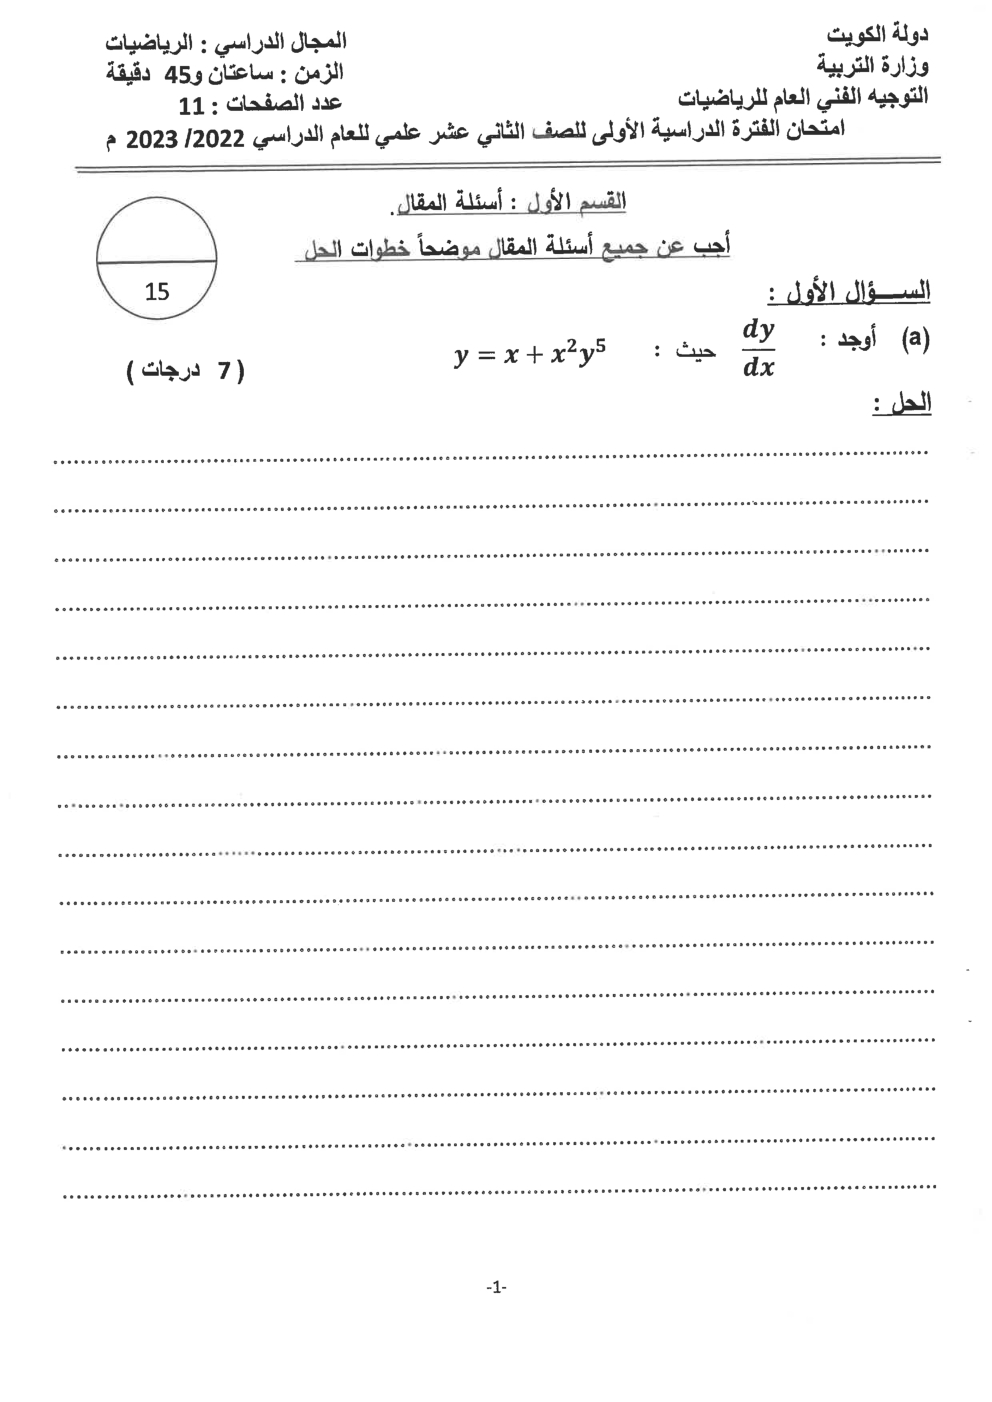 دولة الكويت
وزارة التربية
التوجيه الفني العام للرياضيات
المجال الدراسي : الرياضيات
الزمن : ساعتان و45 دقيقة
عدد الصفحات : 11
امتحان الفترة الدراسية الأولى للصف الثاني عشر علمي للعام الدراسي 2022/ 2023 م
القسم الأول : أسئلة المقال.
أجب عن جميع أسئلة المقال موضحاً خطوات الحل
15
الســـؤال الأول :
(a) أوجد : dy/dx حيث : y = x + x²y⁵
( 7 درجات )
الحل :
-1-